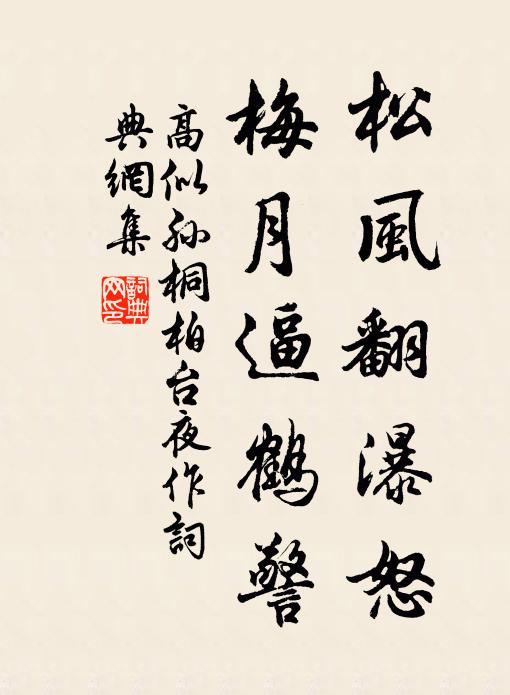 松風翻瀑怒
梅月逼鶴警
高似孙桐柏台夜作詞
典網集
詞典
网印